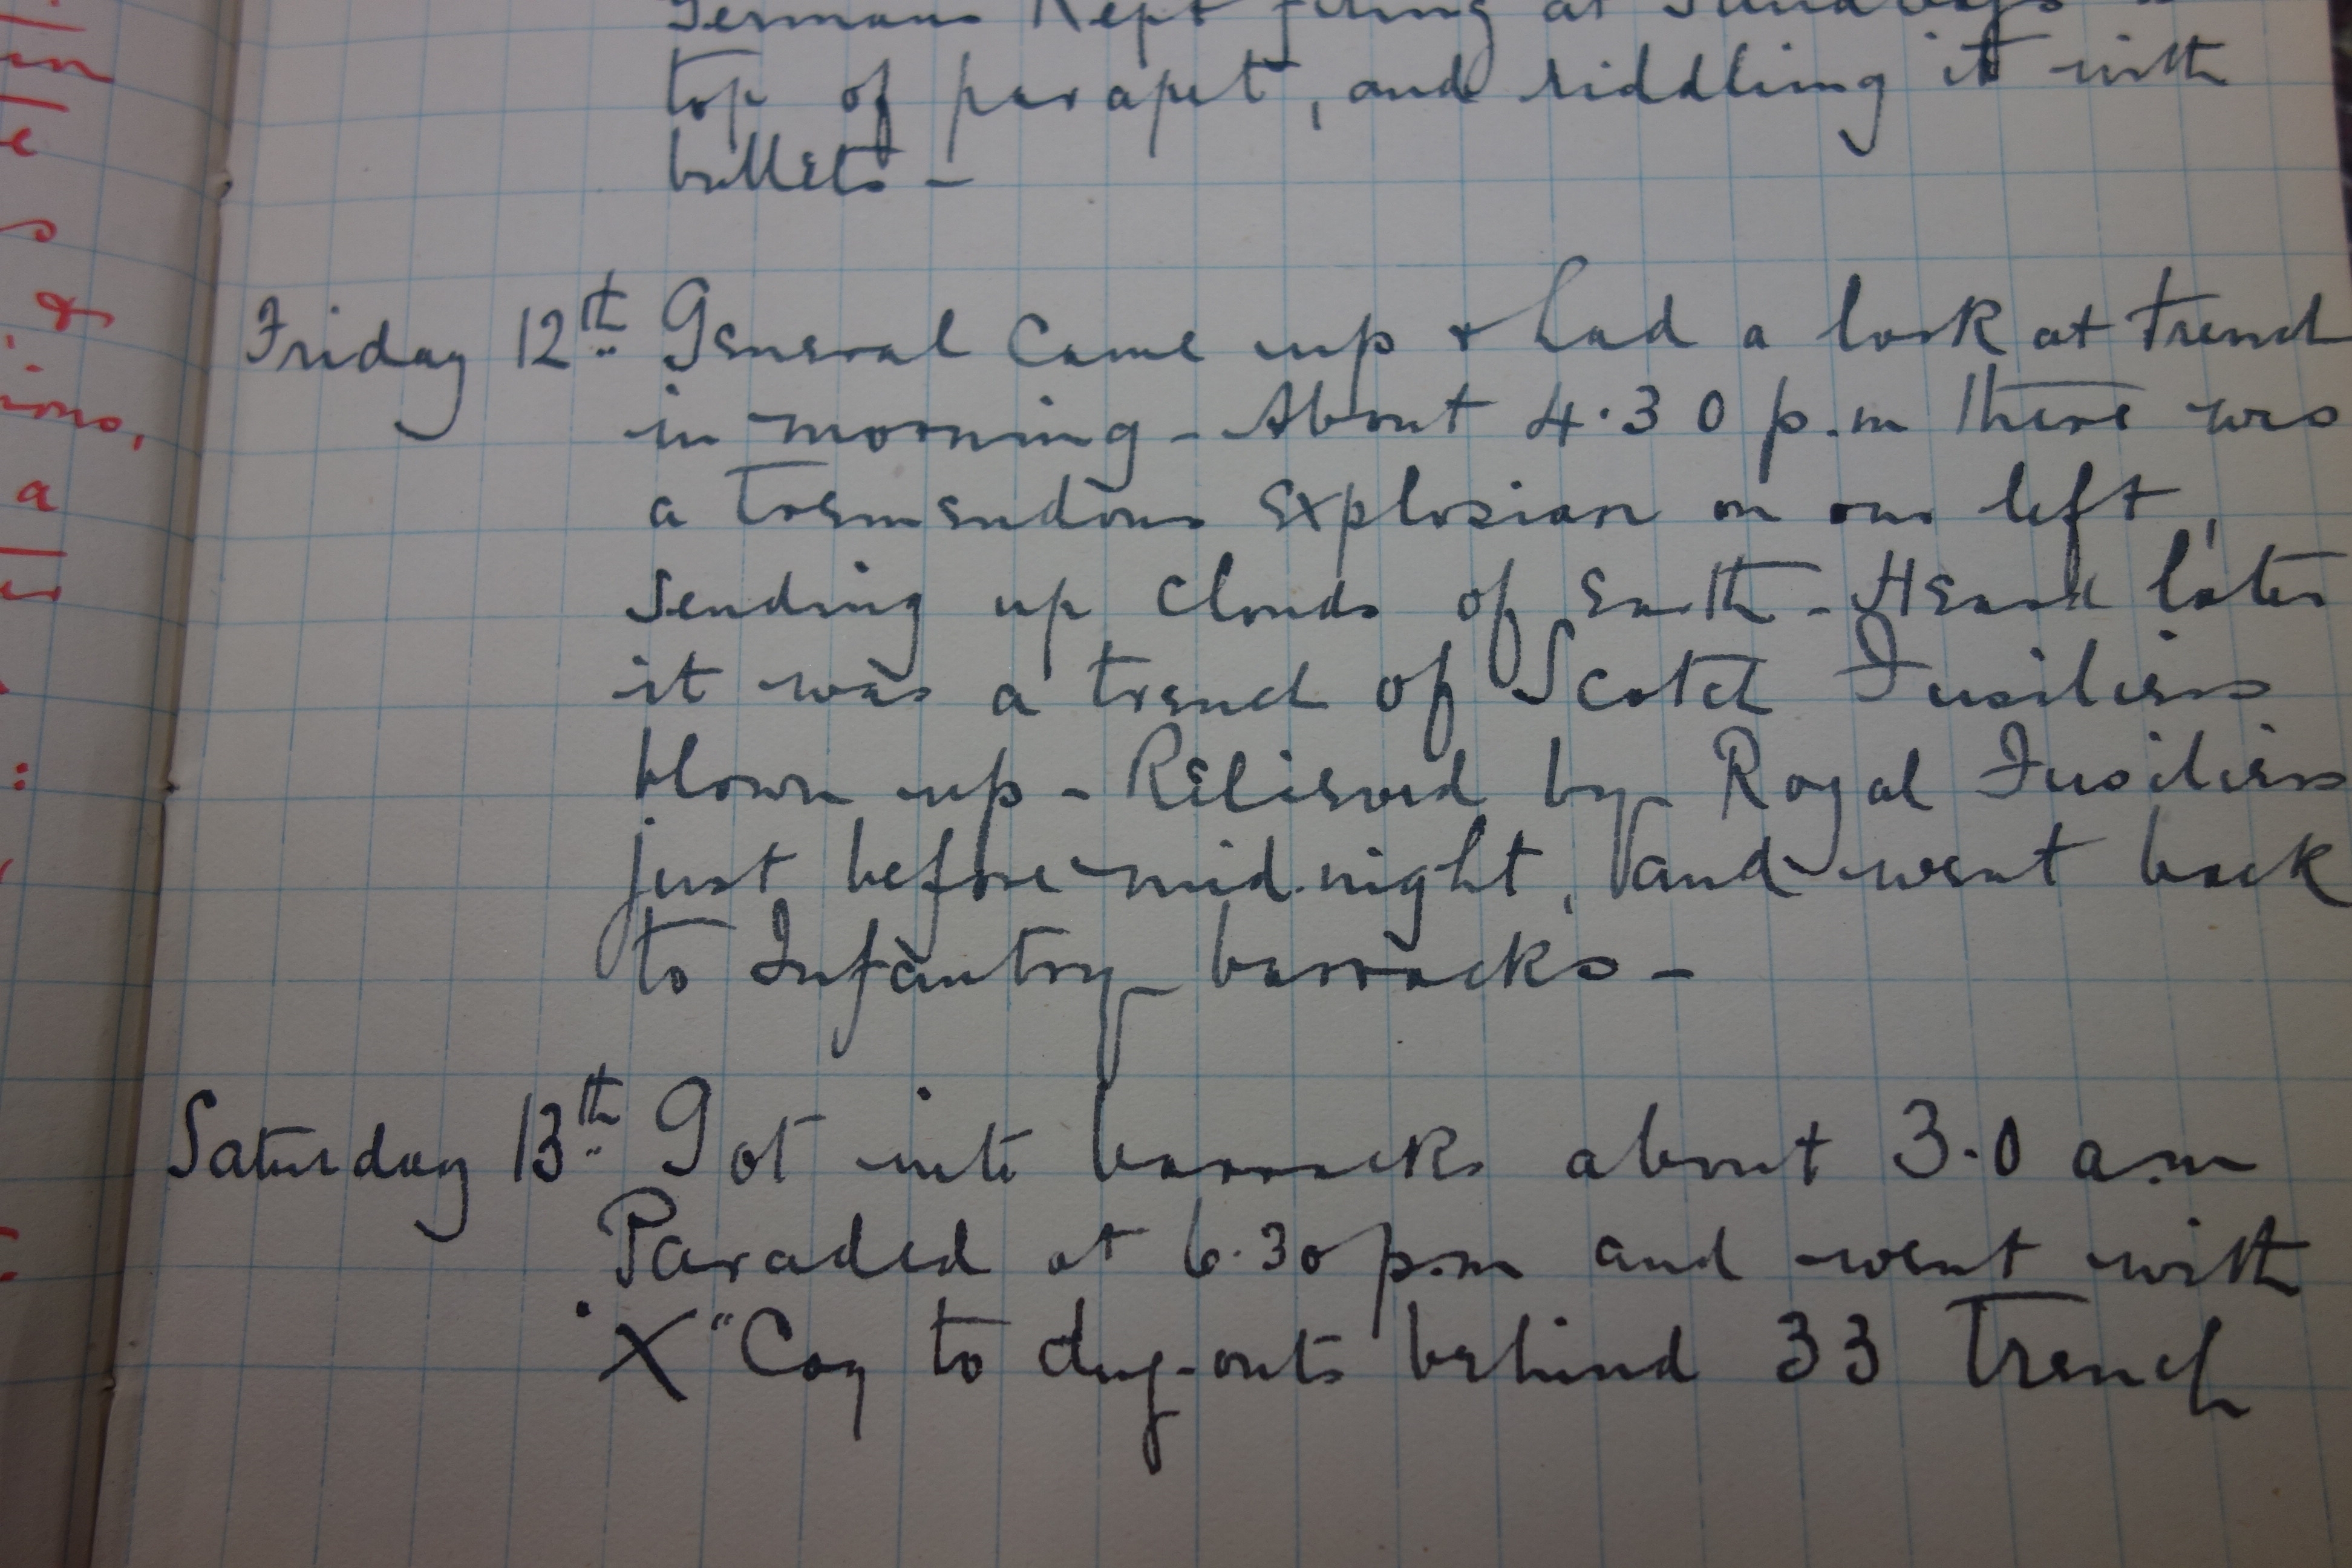 Germans kept firing at sandbags
top of parapet, and riddling it with
bullets -
Friday 12th General came up & had a look at trench
in morning - About 4.30 p.m there was
a tremendous explosion on our left,
sending up clouds of earth - Heard later
it was a trench of Scotch Fusiliers
blown up - Relieved by Royal Fusiliers
just before mid.night, and went back
to Infantry barracks -
Saturday 13th Got into barracks about 3.0 a.m
Paraded at 6.30 p.m and went with
"X" Coy to dug-outs behind 33 Trench
in
e
s
&
ions,
a